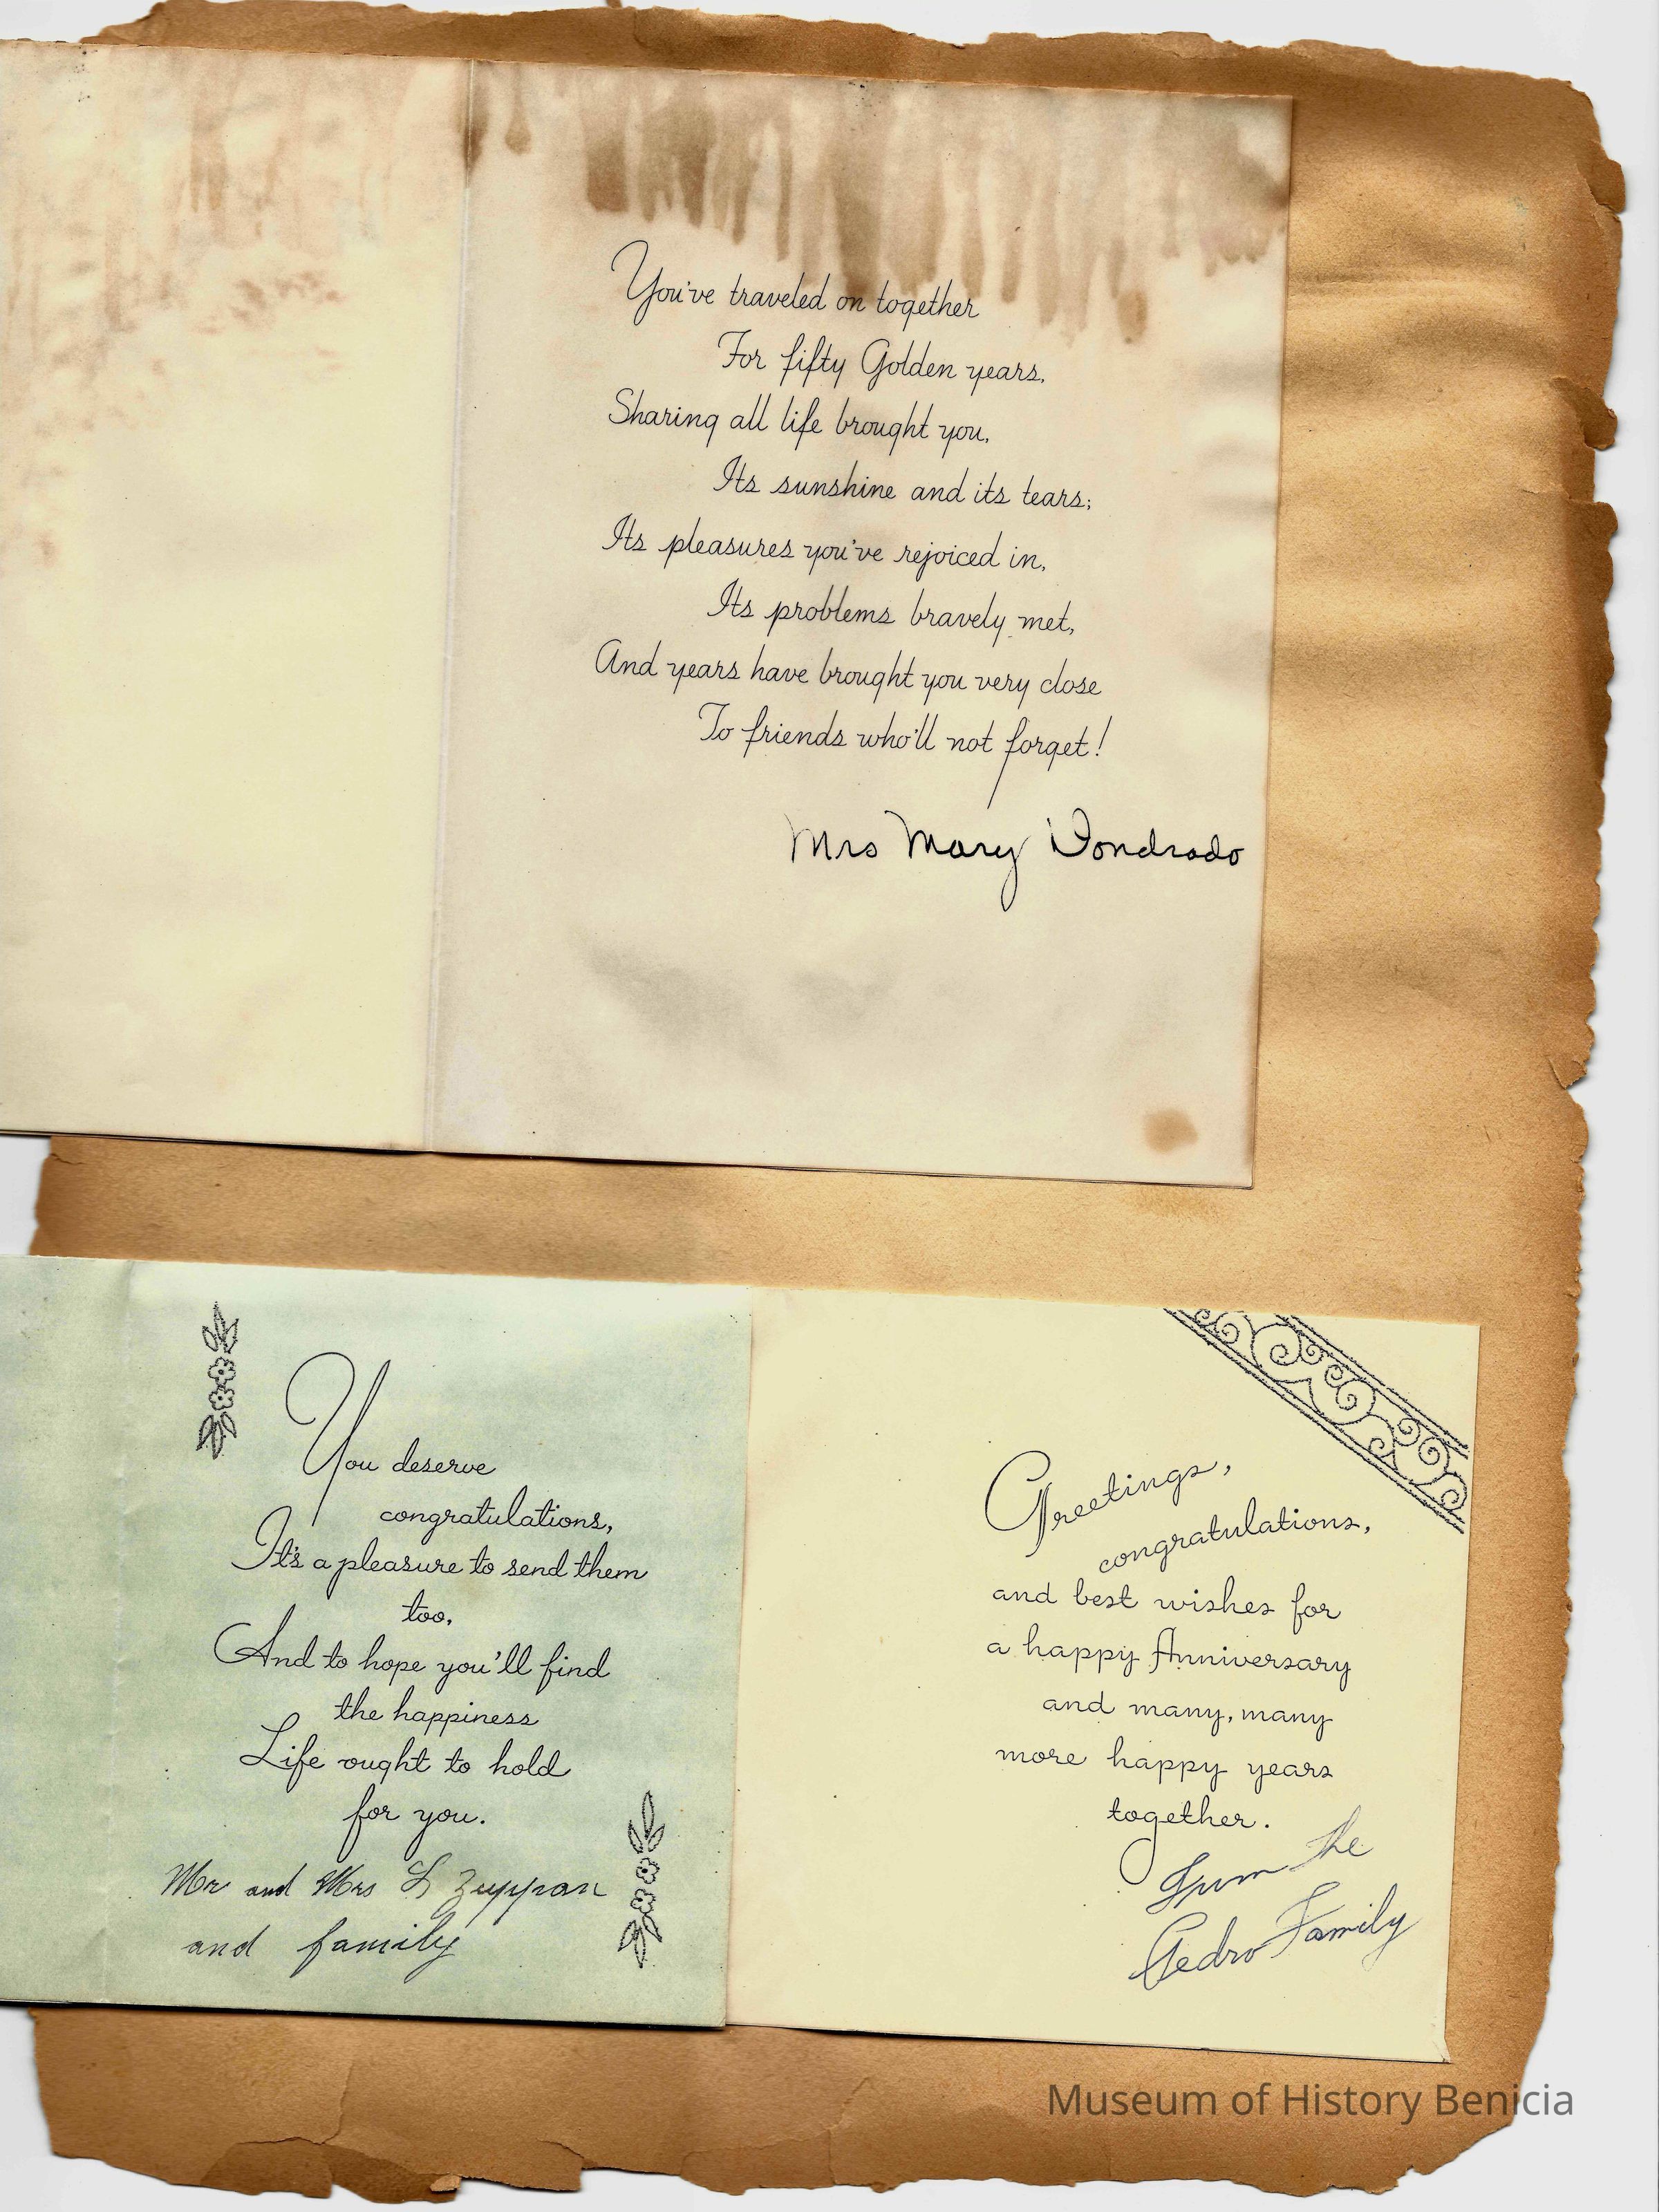 You've traveled on together
For fifty Golden years,
Sharing all life brought you,
Its sunshine and its tears;
Its pleasures you've rejoiced in,
Its problems bravely met,
And years have brought you very close
To friends who'll not forget!
Mrs Mary Dondrado
You deserve
congratulations,
It's a pleasure to send them
too,
And to hope you'll find
the happiness
Life ought to hold
for you.
Mr and Mrs L Zuppan
and family
Greetings,
congratulations,
and best wishes for
a happy Anniversary
and many, many
more happy years
together.
From the
Pedro Family
Museum of History Benicia